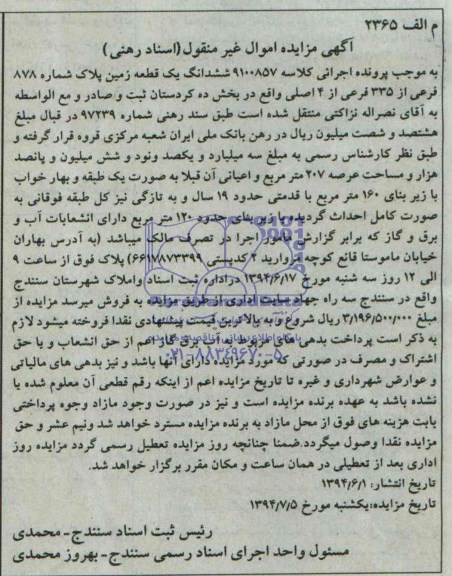 م الف ۲۳۶۵
آگهی مزایده اموال غیر منقول (اسناد رهنی)
به موجب پرونده اجرائی کلاسه ۹۱۰۰۸۵۷ ششدانگ یک قطعه زمین پلاک شماره ۸۷۸
فرعی از ۳۳۵ فرعی از ۴ اصلی واقع در بخش ده کردستان ثبت و صادر و مع الواسطه
به آقای نصراله نزاکتی منتقل شده است طبق سند رهنی شماره ۹۷۲۳۹ در قبال مبلغ
هشتصد و شصت میلیون ریال در رهن بانک ملی ایران شعبه مرکزی قروه قرار گرفته و
طبق نظر کارشناس رسمی به مبلغ سه میلیارد و یکصد ونود و شش میلیون و پانصد
هزار و مساحت عرصه ۲۰۷ متر مربع و اعیانی آن قبلا به صورت یک طبقه و بهار خواب
با زیر بنای ۱۶۰ متر مربع با قدمتی حدود ۱۹ سال و به تازگی نیز کل طبقه فوقانی به
صورت کامل احداث گردیده با زیر بنای حدود ۱۲۰ متر مربع دارای انشعابات آب و
برق و گاز که برابر گزارش مامور اجرا در تصرف مالک میباشد (به آدرس بهاران
خیابان ماموستا قانع کوچه مروارید ۲ کدپستی ۶۶۱۷۸۷۳۳۹۹) پلاک فوق از ساعت ۹
الی ۱۲ روز سه شنبه مورخ ۱۳۹۴/۶/۱۷ در اداره ثبت اسناد واملاک شهرستان سنندج
واقع در سنندج سه راه جهاد سایت اداری از طریق مزایده به فروش میرسد مزایده از
مبلغ ۳/۱۹۶/۵۰۰/۰۰۰ ریال شروع و به بالاترین قیمت پیشنهادی نقدا فروخته میشود لازم
به ذکر است پرداخت بدهی های مربوط به آب برق گاز اعم از حق انشعاب و یا حق
اشتراک و مصرف در صورتی که مورد مزایده دارای آنها باشد و نیز بدهی های مالیاتی
و عوارض شهرداری و غیره تا تاریخ مزایده اعم از اینکه رقم قطعی آن معلوم شده یا
نشده باشد به عهده برنده مزایده است و نیز در صورت وجود مازاد وجوه پرداختی
بابت هزینه های فوق از محل مازاد به برنده مزایده مسترد خواهد شد ونیم عشر و حق
مزایده نقدا وصول میگردد.ضمنا چنانچه روز مزایده تعطیل رسمی گردد مزایده روز
اداری بعد از تعطیلی در همان ساعت و مکان مقرر برگزار خواهد شد.
تاریخ انتشار: ۱۳۹۴/۶/۱
تاریخ مزایده:یکشنبه مورخ ۱۳۹۴/۷/۵
رئیس ثبت اسناد سنندج-محمدی
مسئول واحد اجرای اسناد رسمی سنندج-بهروز محمدی
۰۲۱-۸۸۳۴۹۶۷۰-۵